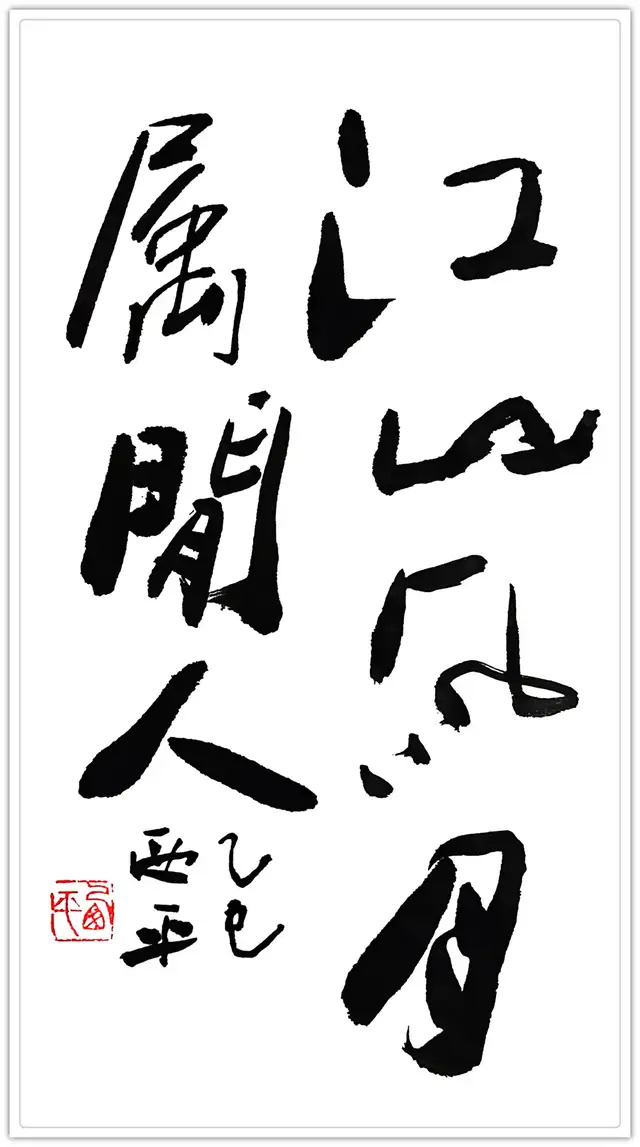 江山風月
属閒人
乙巳
西平